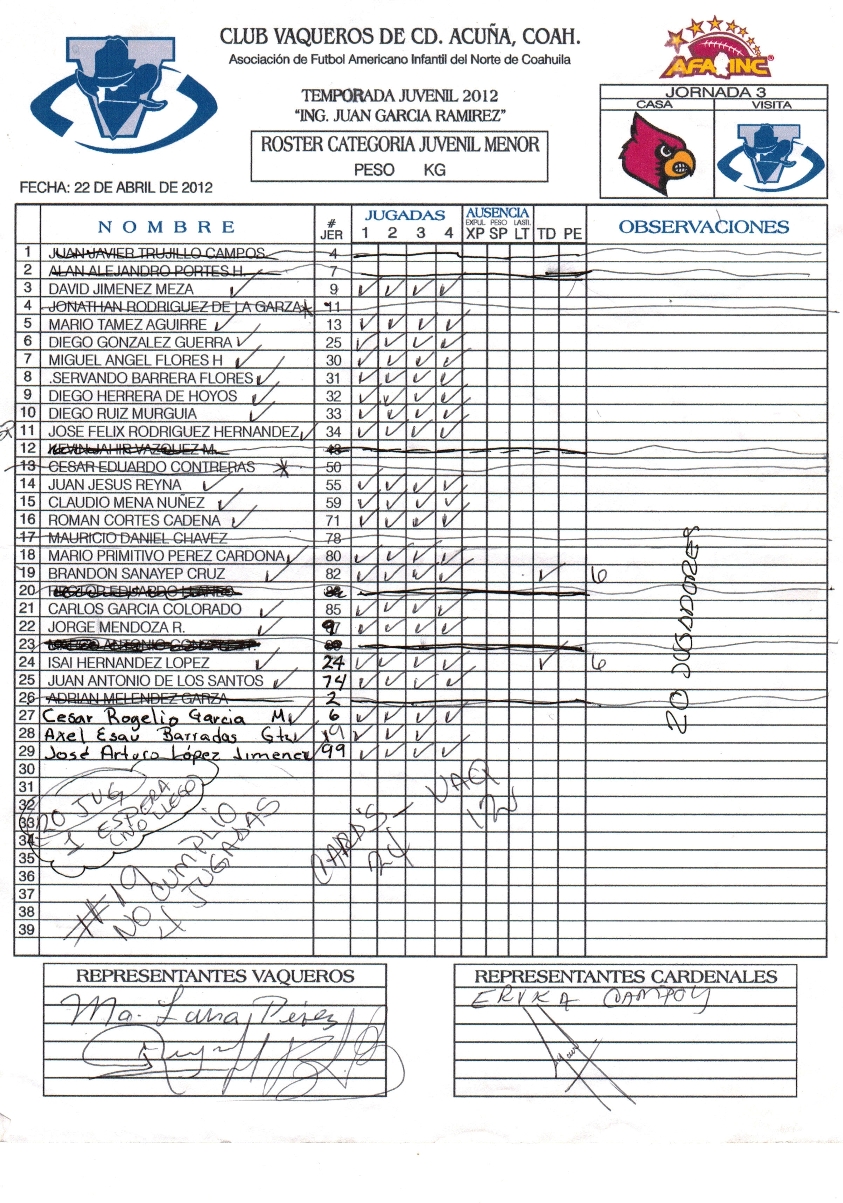 CLUB VAQUEROS DE CD. ACUÑA, COAH.
Asociación de Futbol Americano Infantil del Norte de Coahuila
AFAINC®
TEMPORADA JUVENIL 2012
"ING. JUAN GARCIA RAMIREZ"
JORNADA 3
CASA VISITA
ROSTER CATEGORIA JUVENIL MENOR
PESO KG
FECHA: 22 DE ABRIL DE 2012
NOMBRE # JER JUGADAS 1 2 3 4 AUSENCIA EXPUL XP PESO SP LASTI. LT TD PE OBSERVACIONES
1 JUAN JAVIER TRUJILLO CAMPOS 4
2 ALAN ALEJANDRO PORTES H. 7
3 DAVID JIMENEZ MEZA ✓ 9 ✓ ✓ ✓ ✓
4 JONATHAN RODRIGUEZ DE LA GARZA * 11
5 MARIO TAMEZ AGUIRRE ✓ 13 ✓ ✓ ✓ ✓
6 DIEGO GONZALEZ GUERRA ✓ 25 ✓ ✓ ✓ ✓
7 MIGUEL ANGEL FLORES H ✓ 30 ✓ ✓ ✓ ✓
8 .SERVANDO BARRERA FLORES ✓ 31 ✓ ✓ ✓ ✓
9 DIEGO HERRERA DE HOYOS ✓ 32 ✓ ✓ ✓ ✓
10 DIEGO RUIZ MURGUIA ✓ 33 ✓ ✓ ✓ ✓
11 JOSE FELIX RODRIGUEZ HERNANDEZ ✓ 34 ✓ ✓ ✓ ✓
12 KEVIN JAHIR VAZQUEZ M.
13 CESAR EDUARDO CONTRERAS * 50
14 JUAN JESUS REYNA ✓ 55 ✓ ✓ ✓ ✓
15 CLAUDIO MENA NUÑEZ ✓ 59 ✓ ✓ ✓ ✓
16 ROMAN CORTES CADENA ✓ 71 ✓ ✓ ✓ ✓
17 MAURICIO DANIEL CHAVEZ 78
18 MARIO PRIMITIVO PEREZ CARDONA ✓ 80 ✓ ✓ ✓ ✓
19 BRANDON SANAYEP CRUZ ✓ 82 ✓ ✓ ✓ ✓ ✓ 6
20
21 CARLOS GARCIA COLORADO ✓ 85 ✓ ✓ ✓ ✓
22 JORGE MENDOZA R. ✓ ✓ ✓ ✓ ✓
23
24 ISAI HERNANDEZ LOPEZ ✓ 24 ✓ ✓ ✓ ✓ ✓ 6
25 JUAN ANTONIO DE LOS SANTOS ✓ 74 ✓ ✓ ✓ ✓
26 ADRIAN MELENDEZ GARZA 2
27 Cesar Rogelio Garcia M ✓ 6 ✓ ✓ ✓ ✓
28 Axel Esau Barradas Gtz ✓ 19 ✓ ✓ ✓
29 José Arturo López Jimenez ✓ 99 ✓ ✓ ✓ ✓
30
31
32
33
34
35
36
37
38
39
20 JUGADORES
20 JUG
1 ESPERA
NO LLEGO
#19
NO CUMPLIO
4 JUGADAS
CARD'S - VAQ
24 12
REPRESENTANTES VAQUEROS
Ma. Luisa Pérez
REPRESENTANTES CARDENALES
ERIKA CAMPOY